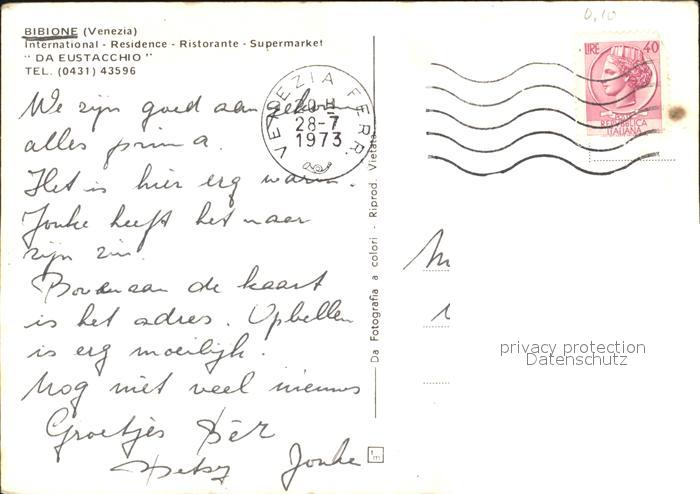 BIBIONE (Venezia)
International - Residence - Ristorante - Supermarket
" DA EUSTACCHIO "
TEL. (0431) 43596
We zijn goed aangekomen
alles prima.
Het is hier erg warm.
Jonke heeft het naar
zijn zin.
Bovenaan de kaart
is het adres. Opbellen
is erg moeilijk.
Nog niet veel nieuws
Groetjes
Betsy Jonke
VENEZIA FERR.
20-H
28-7
1973
Da Fotografia a colori - Riprod. Vietata
fm
0,10
LIRE 40
REPVBBLICA
ITALIANA
privacy protection
Datenschutz